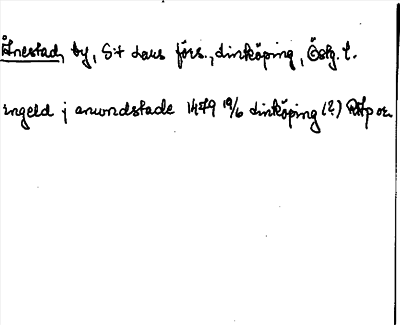 Ånestad, by, S:t Lars förs., Linköping, Östg. l.
ingeld j anundstade 1479 19/6 Linköping (?) RAp or.